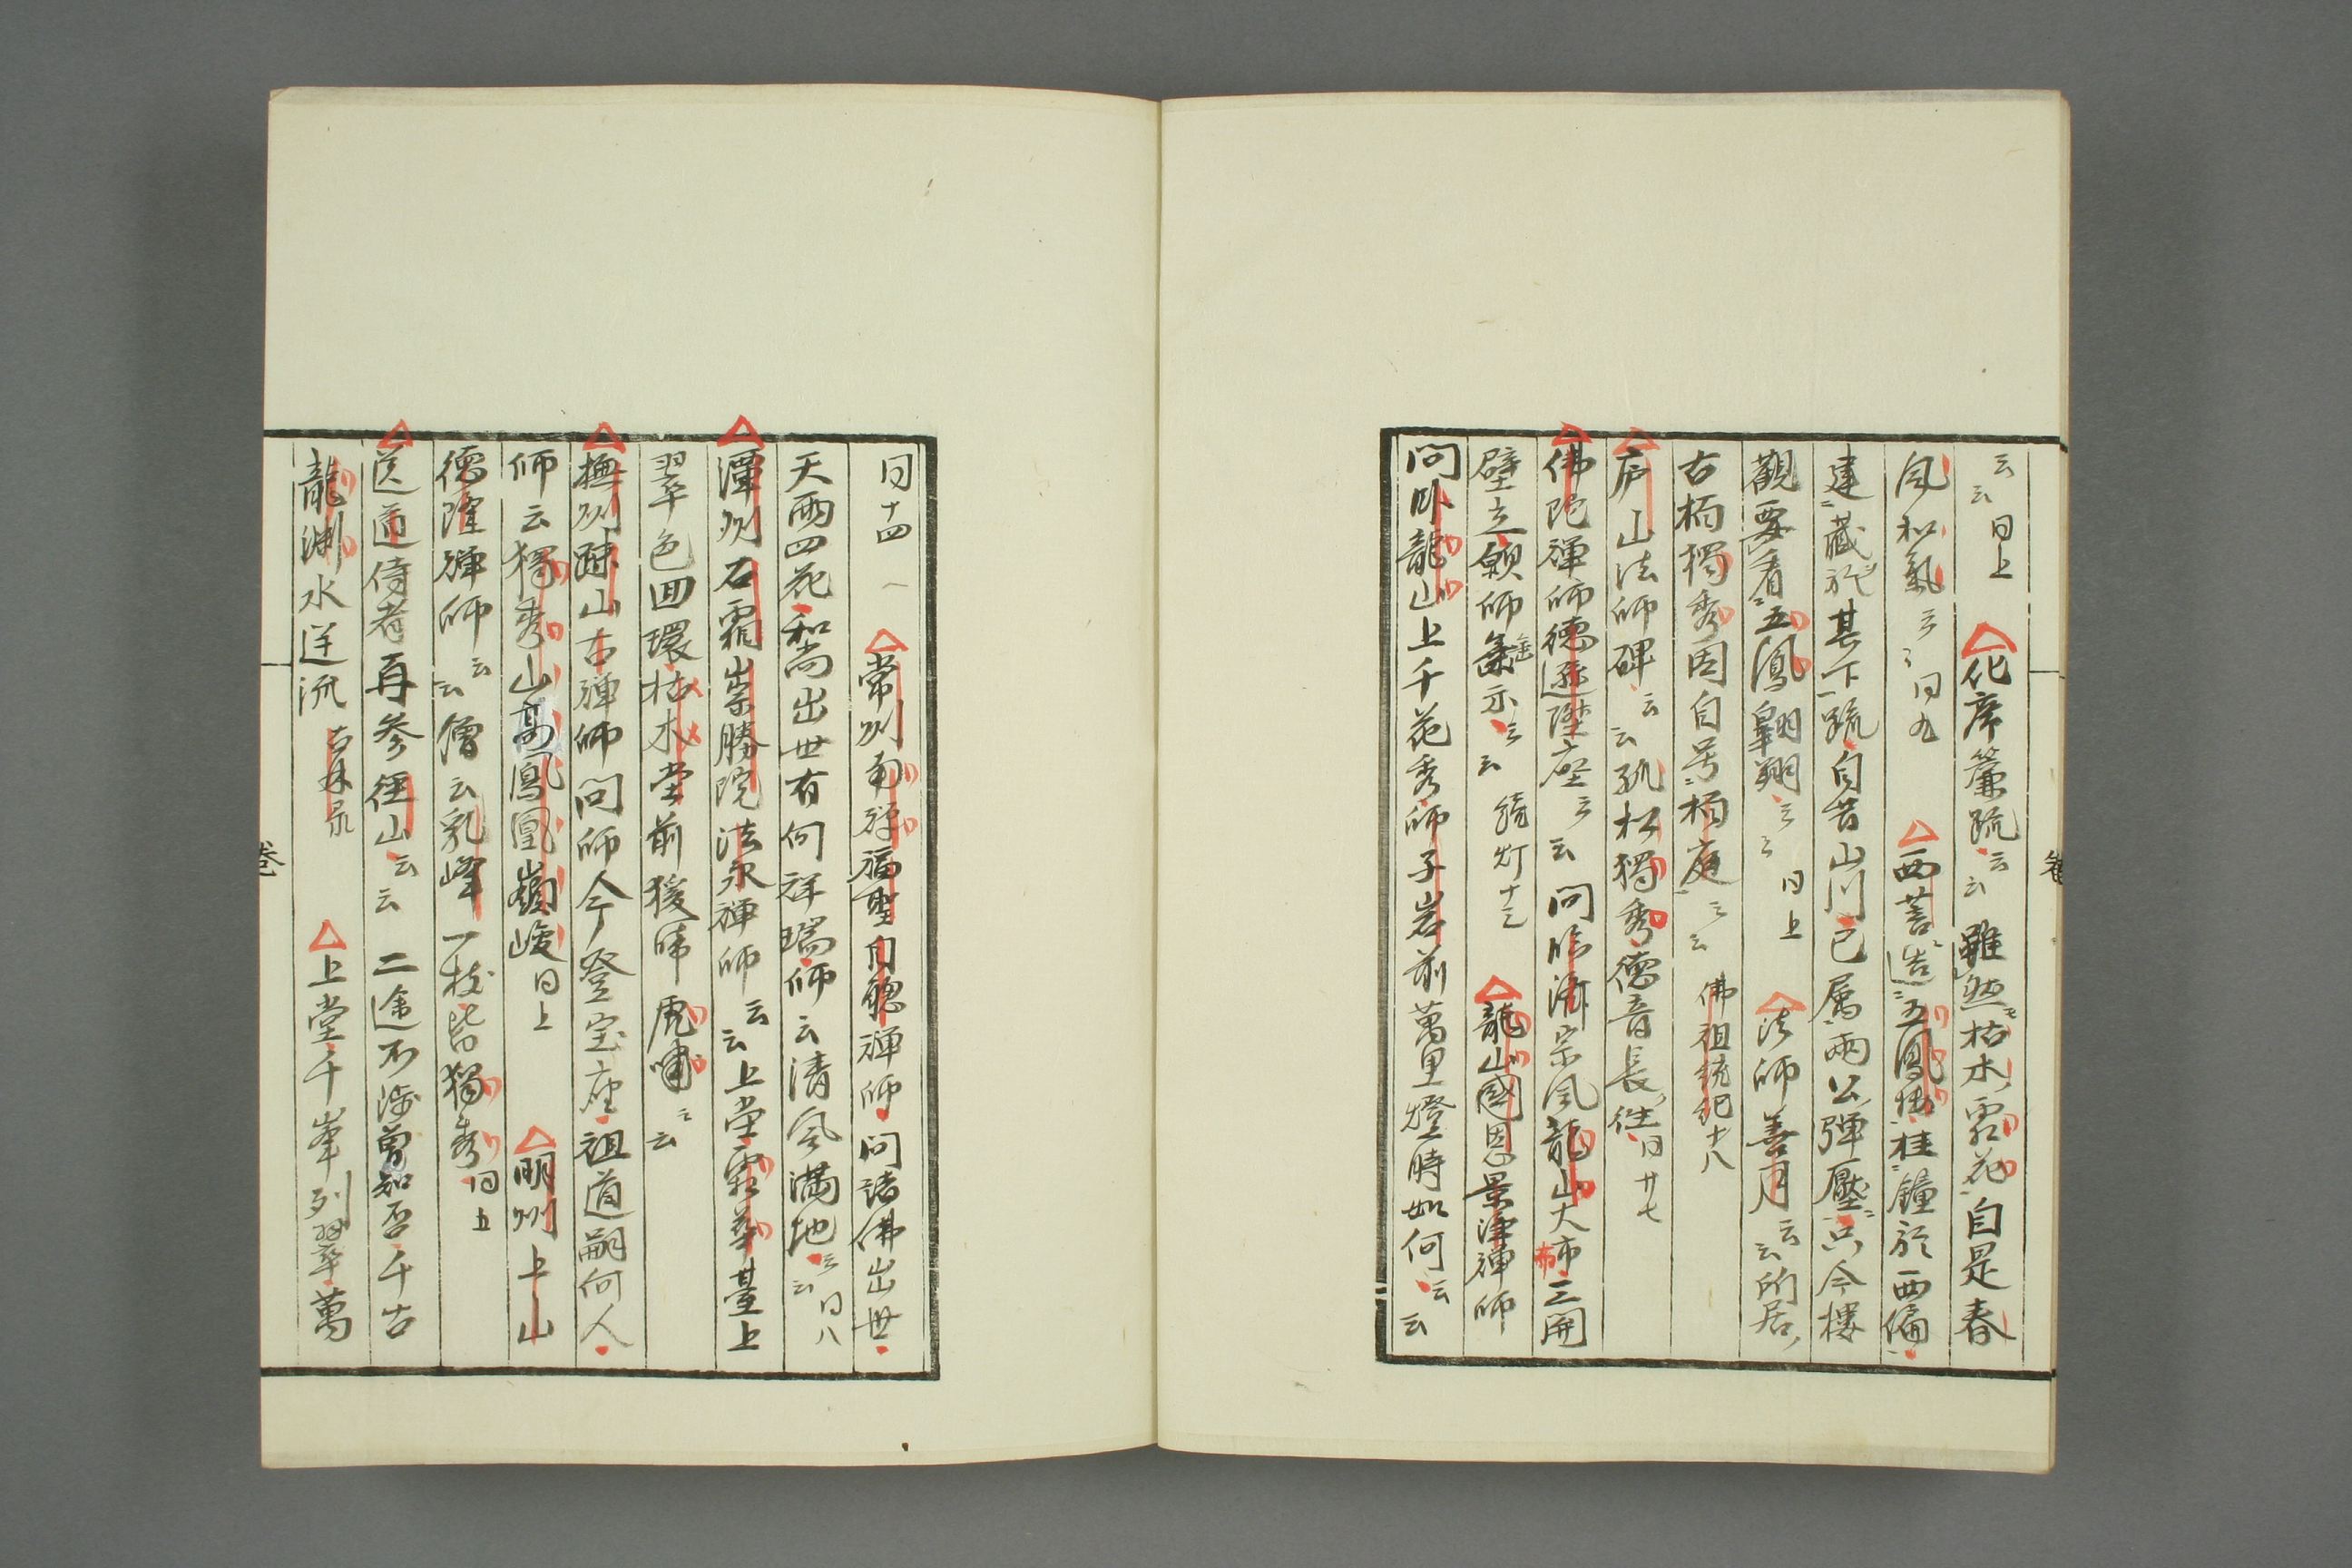 云云 同上 化席簾疏云云 雖然枯木霜花自是春
風和氣云云 同九 西菩造五鳳樓桂鐘於西偏
建藏於其下疏自昔山川已属兩公彈壓只今樓
觀要看五鳳翺翔云云 同上 法師善月云云所居
古柏獨秀因自号柏庭云云 佛祖統紀十八
庐山法師碑云云孔松獨秀德音長往 同廿七
佛陀禅師德遜陞座云云問臨濟宗風龍山大布三開
壁立師垂示云云 続灯十三 龍山國恩景津禅師
問卧龍山上千花秀師子岩前萬里燈時如何云云
同十四 常州南禅福聖自聰禅師問諸佛出世
天雨四花和尚出世有何祥瑞師云清風満地云云同八
潭州石霜崇勝院法永禅師云云上堂霜華臺上
翠色回環枯木堂前猿啼虎嘯云云
撫州踈山古禅師問師今登宝座祖道嗣何人
師云獨秀山高鳳凰嶺峻 同上 明州上山
德隆禅師云云僧云乳峰一枝皆獨秀 同五
送道侍者再参徑山云云 二途不涉曽知否千古
龍渊水逆流 古林录 上堂千峯列翠萬
卷